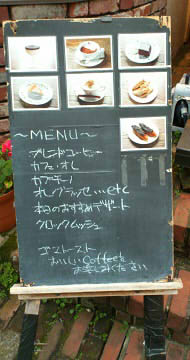 ～MENU～
ブレンドコーヒー
カフェ・オレ
カプチーノ
オレグラッセ…etc
本日のおすすめデザート
クロックムッシュ
ゴーストースト
おいしいCoffeeを
お楽しみください